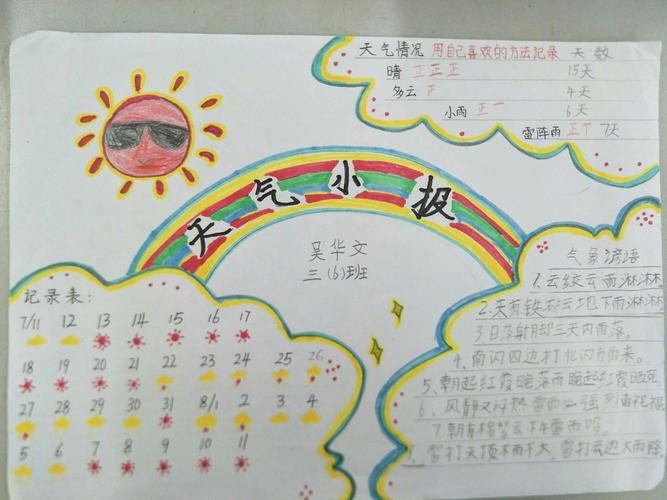 天气情况 用自己喜欢的方法记录 天数
晴 正正正 15天
多云 4天
小雨 正一 6天
雷阵雨 正丅 7天
天气小报
吴华文
三(6)班
记录表:
7/11 12 13 14 15 16 17
18 19 20 21 22 23 24 25 26
27 28 29 30 31 8/1 2 3 4
5 6 7 8 9 10 11
气象谚语
1.云绞云雨淋淋
2.夫剪铁 云地下雨淋淋
3日落射脚三天内雨落。
4.南闪四边打北闪有雨来。
5.朝起红霞晚落雨晚起红霞晒死
6、风静又闷热雷雨必强烈
7.朝有 云下午雷雨鸣。
雷打天顶不雨不大,雷打云边大雨降